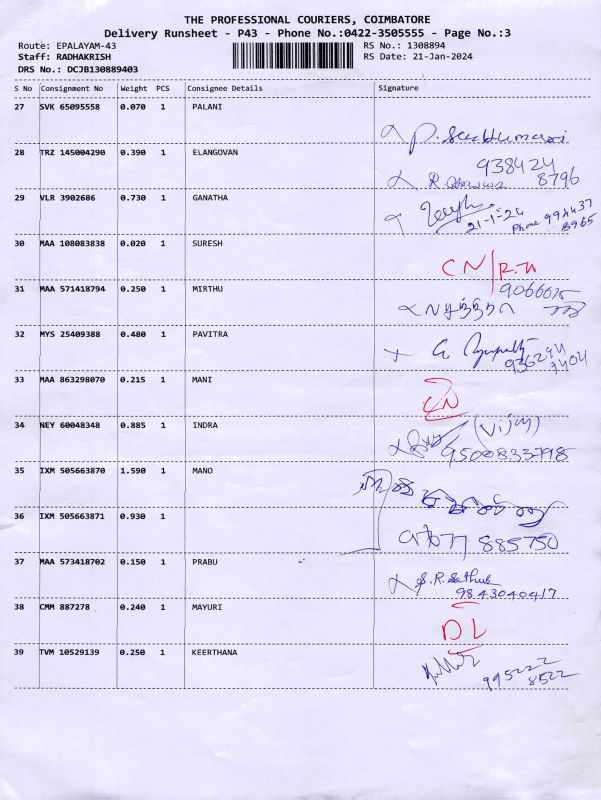 THE PROFESSIONAL COURIERS, COIMBATORE
Delivery Runsheet - P43 - Phone No.:0422-3505555 - Page No.:3
Route: EPALAYAM-43 RS No.: 1308894
Staff: RADHAKRISH RS Date: 21-Jan-2024
DRS No.: DCJB130889403
S No Consignment No Weight PCS Consignee Details Signature
27 SVK 65095558 0.070 1 PALANI
28 TRZ 145004290 0.390 1 ELANGOVAN 938424
8796
29 VLR 3902686 0.730 1 GANATHA
21-1-24 Phone 994437
8965
30 MAA 108083838 0.020 1 SURESH CN/R.N
31 MAA 571418794 0.250 1 MIRTHU
32 MYS 25409388 0.480 1 PAVITRA
33 MAA 863298070 0.215 1 MANI CN
34 NEY 60048348 0.885 1 INDRA (Vijay)
9500833798
35 IXM 505663870 1.590 1 MANO
36 IXM 505663871 0.930 1 885750
37 MAA 573418702 0.150 1 PRABU S.R. Sethu
9843040417
38 CMM 887278 0.240 1 MAYURI DL
39 TVM 10529139 0.250 1 KEERTHANA 995222
8522